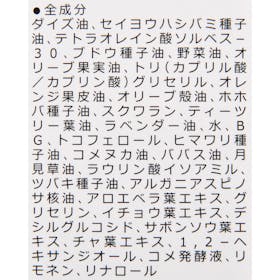 ●全成分
ダイズ油、セイヨウハシバミ種子
油、テトラオレイン酸ソルベス－
３０、ブドウ種子油、野菜油、オ
リーブ果実油、トリ（カプリル酸
／カプリン酸）グリセリル、オレ
ンジ果皮油、オリーブ殻油、ホホ
バ種子油、スクワラン、ティーツ
リー葉油、ラベンダー油、水、Ｂ
Ｇ、トコフェロール、ヒマワリ種
子油、コメヌカ油、ババス油、月
見草油、ラウリン酸イソアミル、
ツバキ種子油、アルガニアスピノ
サ核油、アロエベラ葉エキス、グ
リセリン、イチョウ葉エキス、デ
シルグルコシド、サボンソウ葉エ
キス、チャ葉エキス、１，２－ヘ
キサンジオール、コメ発酵液、リ
モネン、リナロール